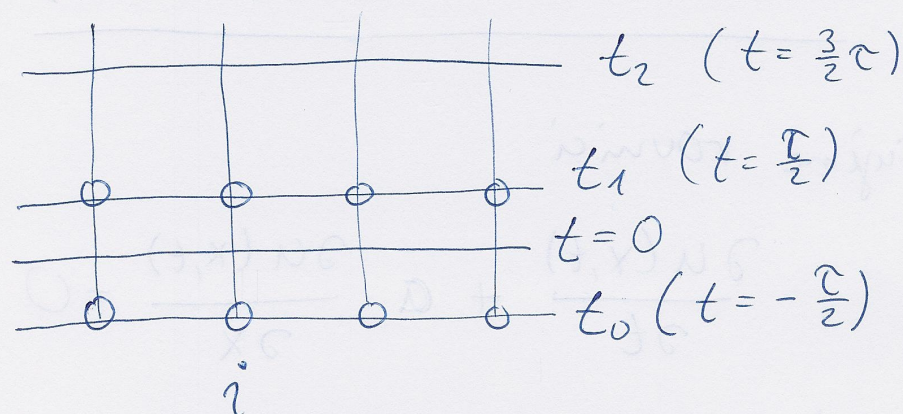 t₂ (t = 3/2 τ)
t₁ (t = τ/2)
t = 0
t₀ (t = - τ/2)
i